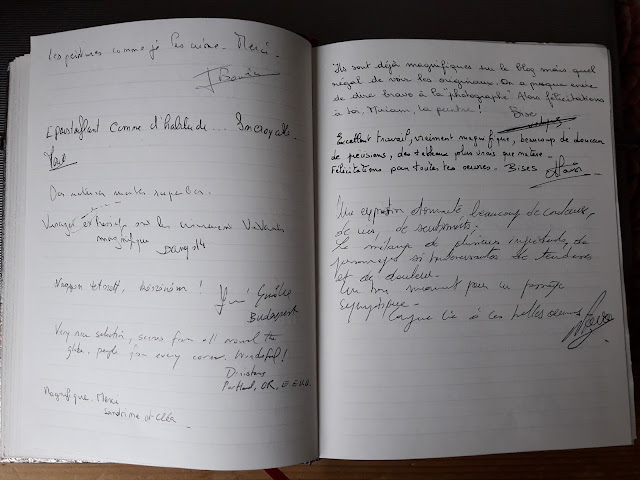 Les peintures comme je les aime. Merci.
Epoustouflant comme d'habitude... Incroyable.
Des natures mortes superbes.
Visages
magnifique
Nagyon tetszett, köszönöm!
Budapest
Very nice selection, scenes from all around the
globe, people from every corner. Wonderful!
Portland, OR, E.E.U.U.
Magnifique. Merci
Sandrine et Cléa
"Ils sont déjà magnifiques sur le blog mais quel
régal de voir les originaux. On a presque envie
de dire bravo à la "photographe" Alors félicitations
à toi, Myriam, la peintre!
Excellent travail, vraiment magnifique, beaucoup de douceur
de precisions, des tableaux plus vrais que nature.
Félicitations pour toutes tes oeuvres. Bises
Une exposition étonnante, beaucoup de couleurs,
de vie, de sentiments.
Le mélange de plusieurs
personnages si de tendresse
et de douceur.
Un bon moment pour un passage
Longue vie à ces belles oeuvres